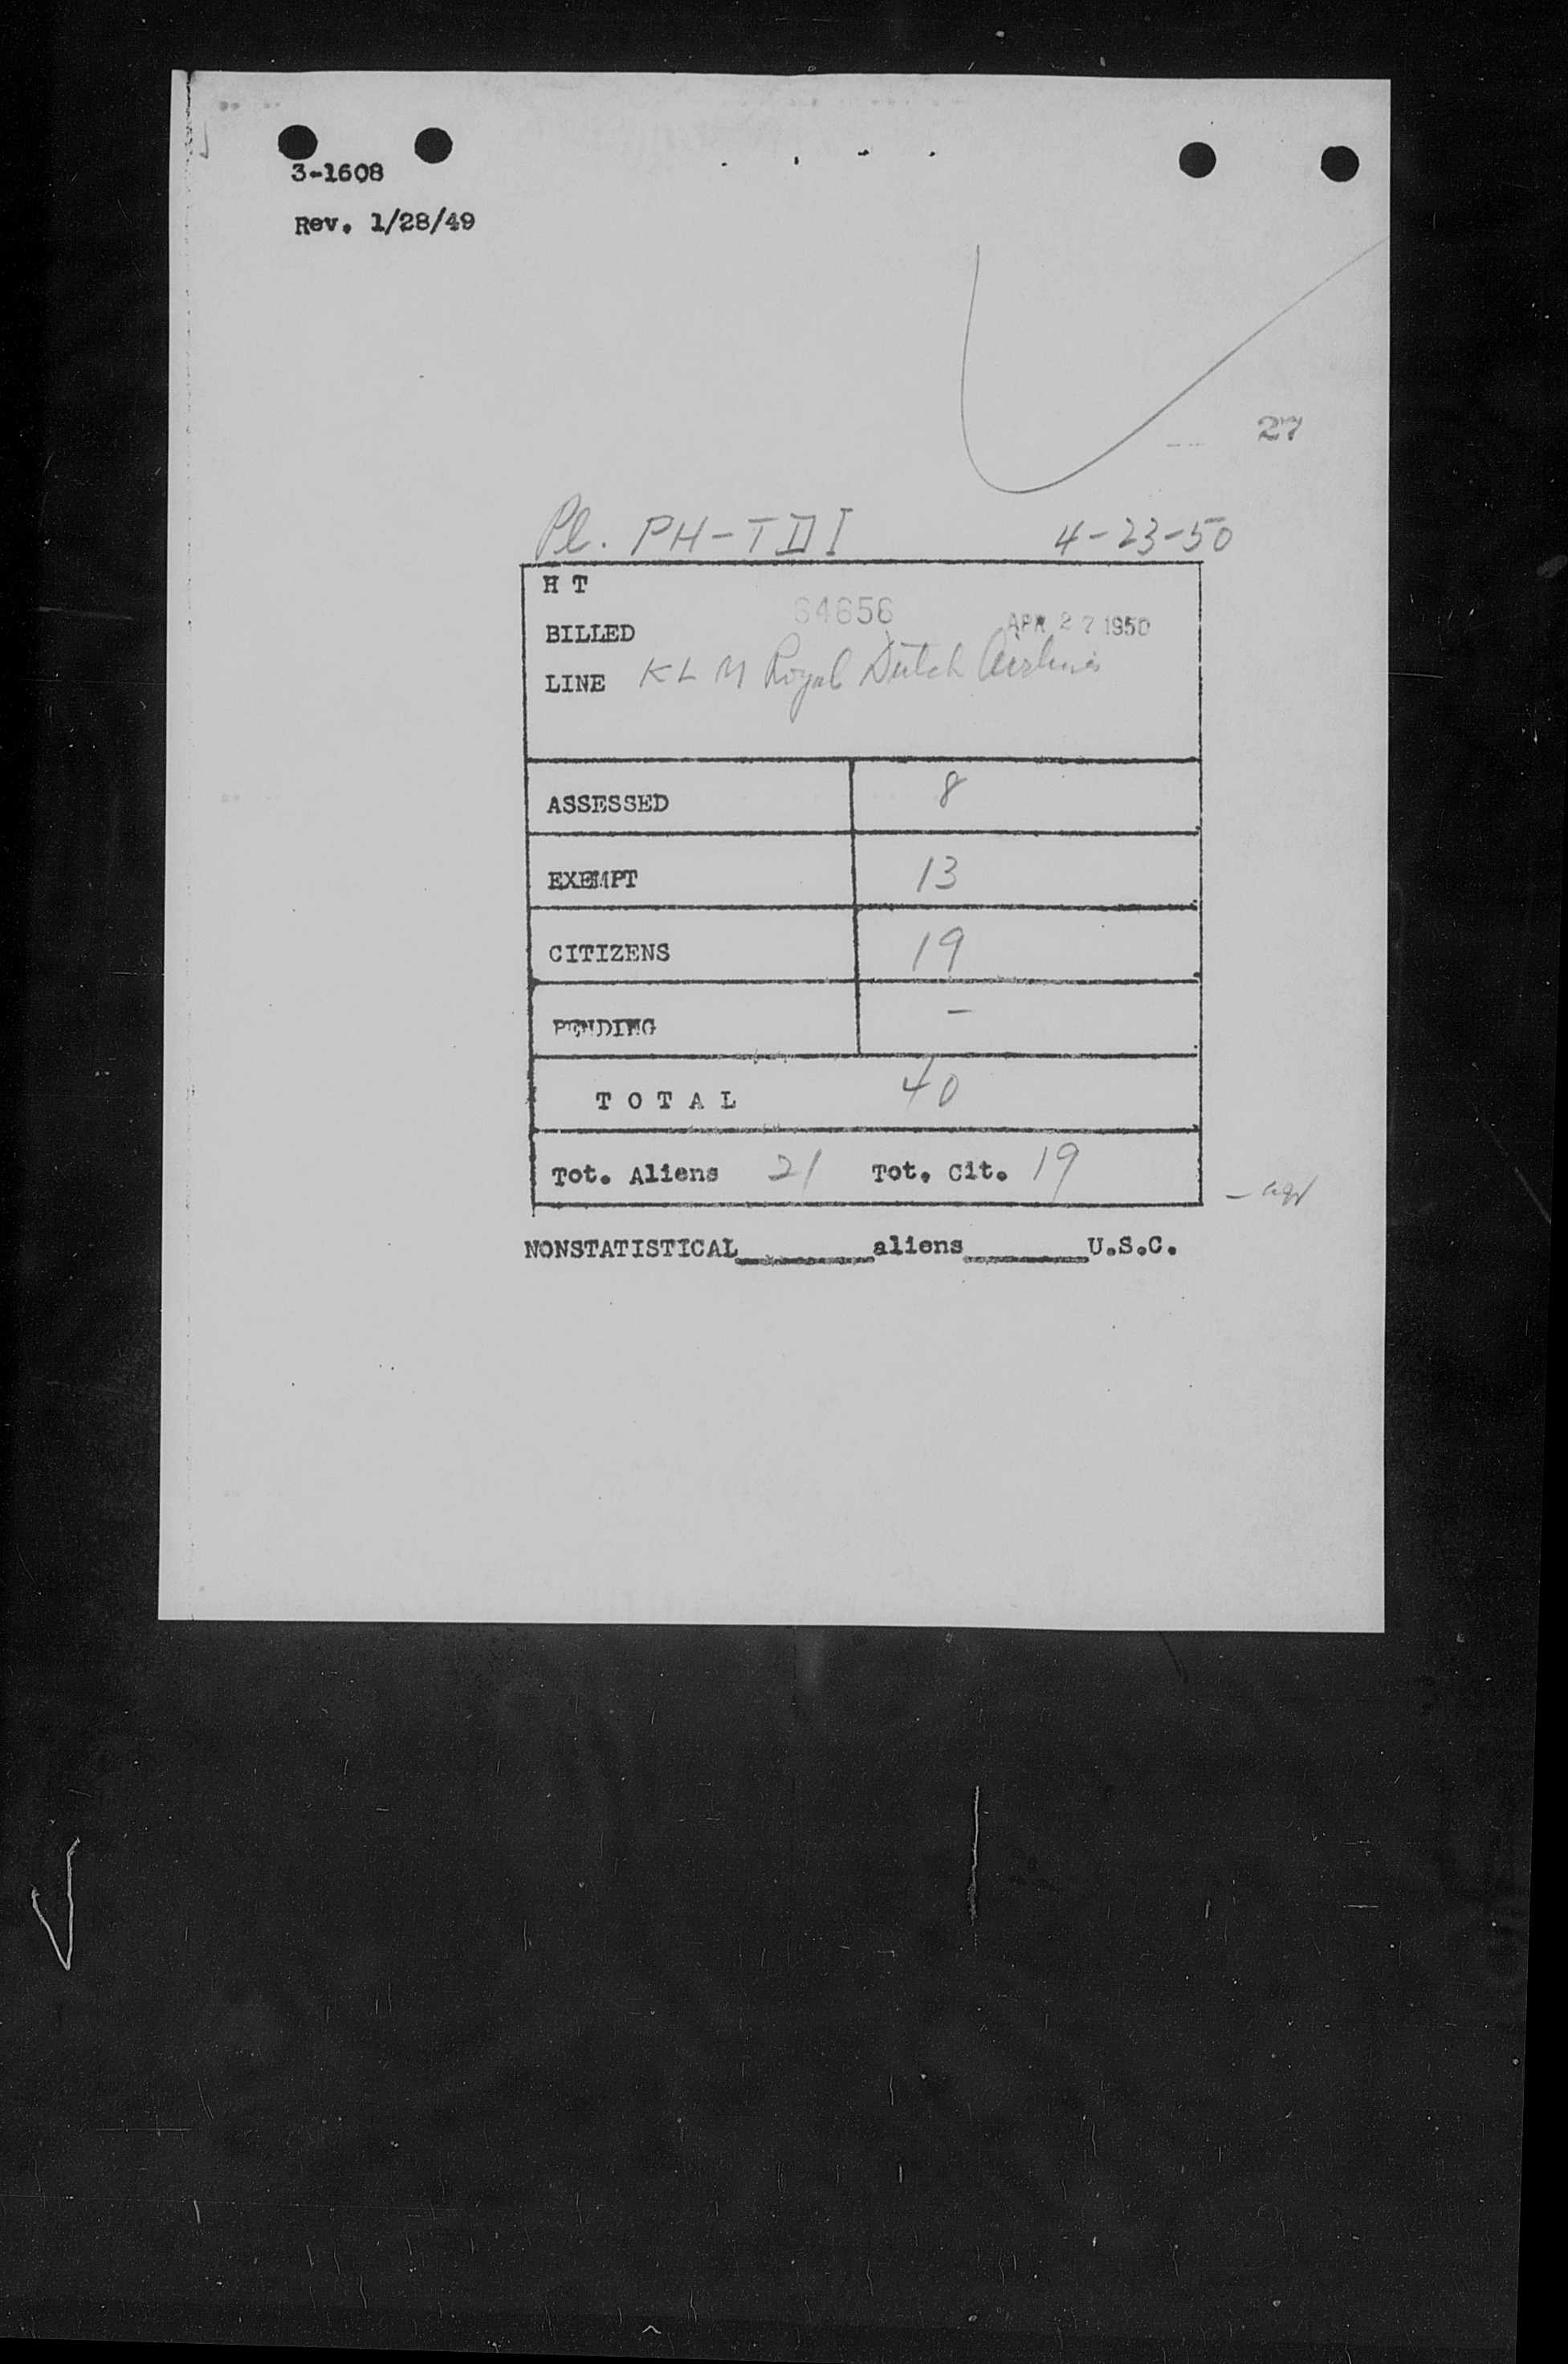 3-1608
Rev. 1/28/49
27
Pl. PH-TDI 4-23-50
H T
64656
BILLED APR 27 1950
LINE KLM Royal Dutch Airlines
ASSESSED 8
EXEMPT 13
CITIZENS 19
PENDING -
TOTAL 40
Tot. Aliens 21 Tot. Cit. 19
NONSTATISTICAL________aliens________U.S.C.